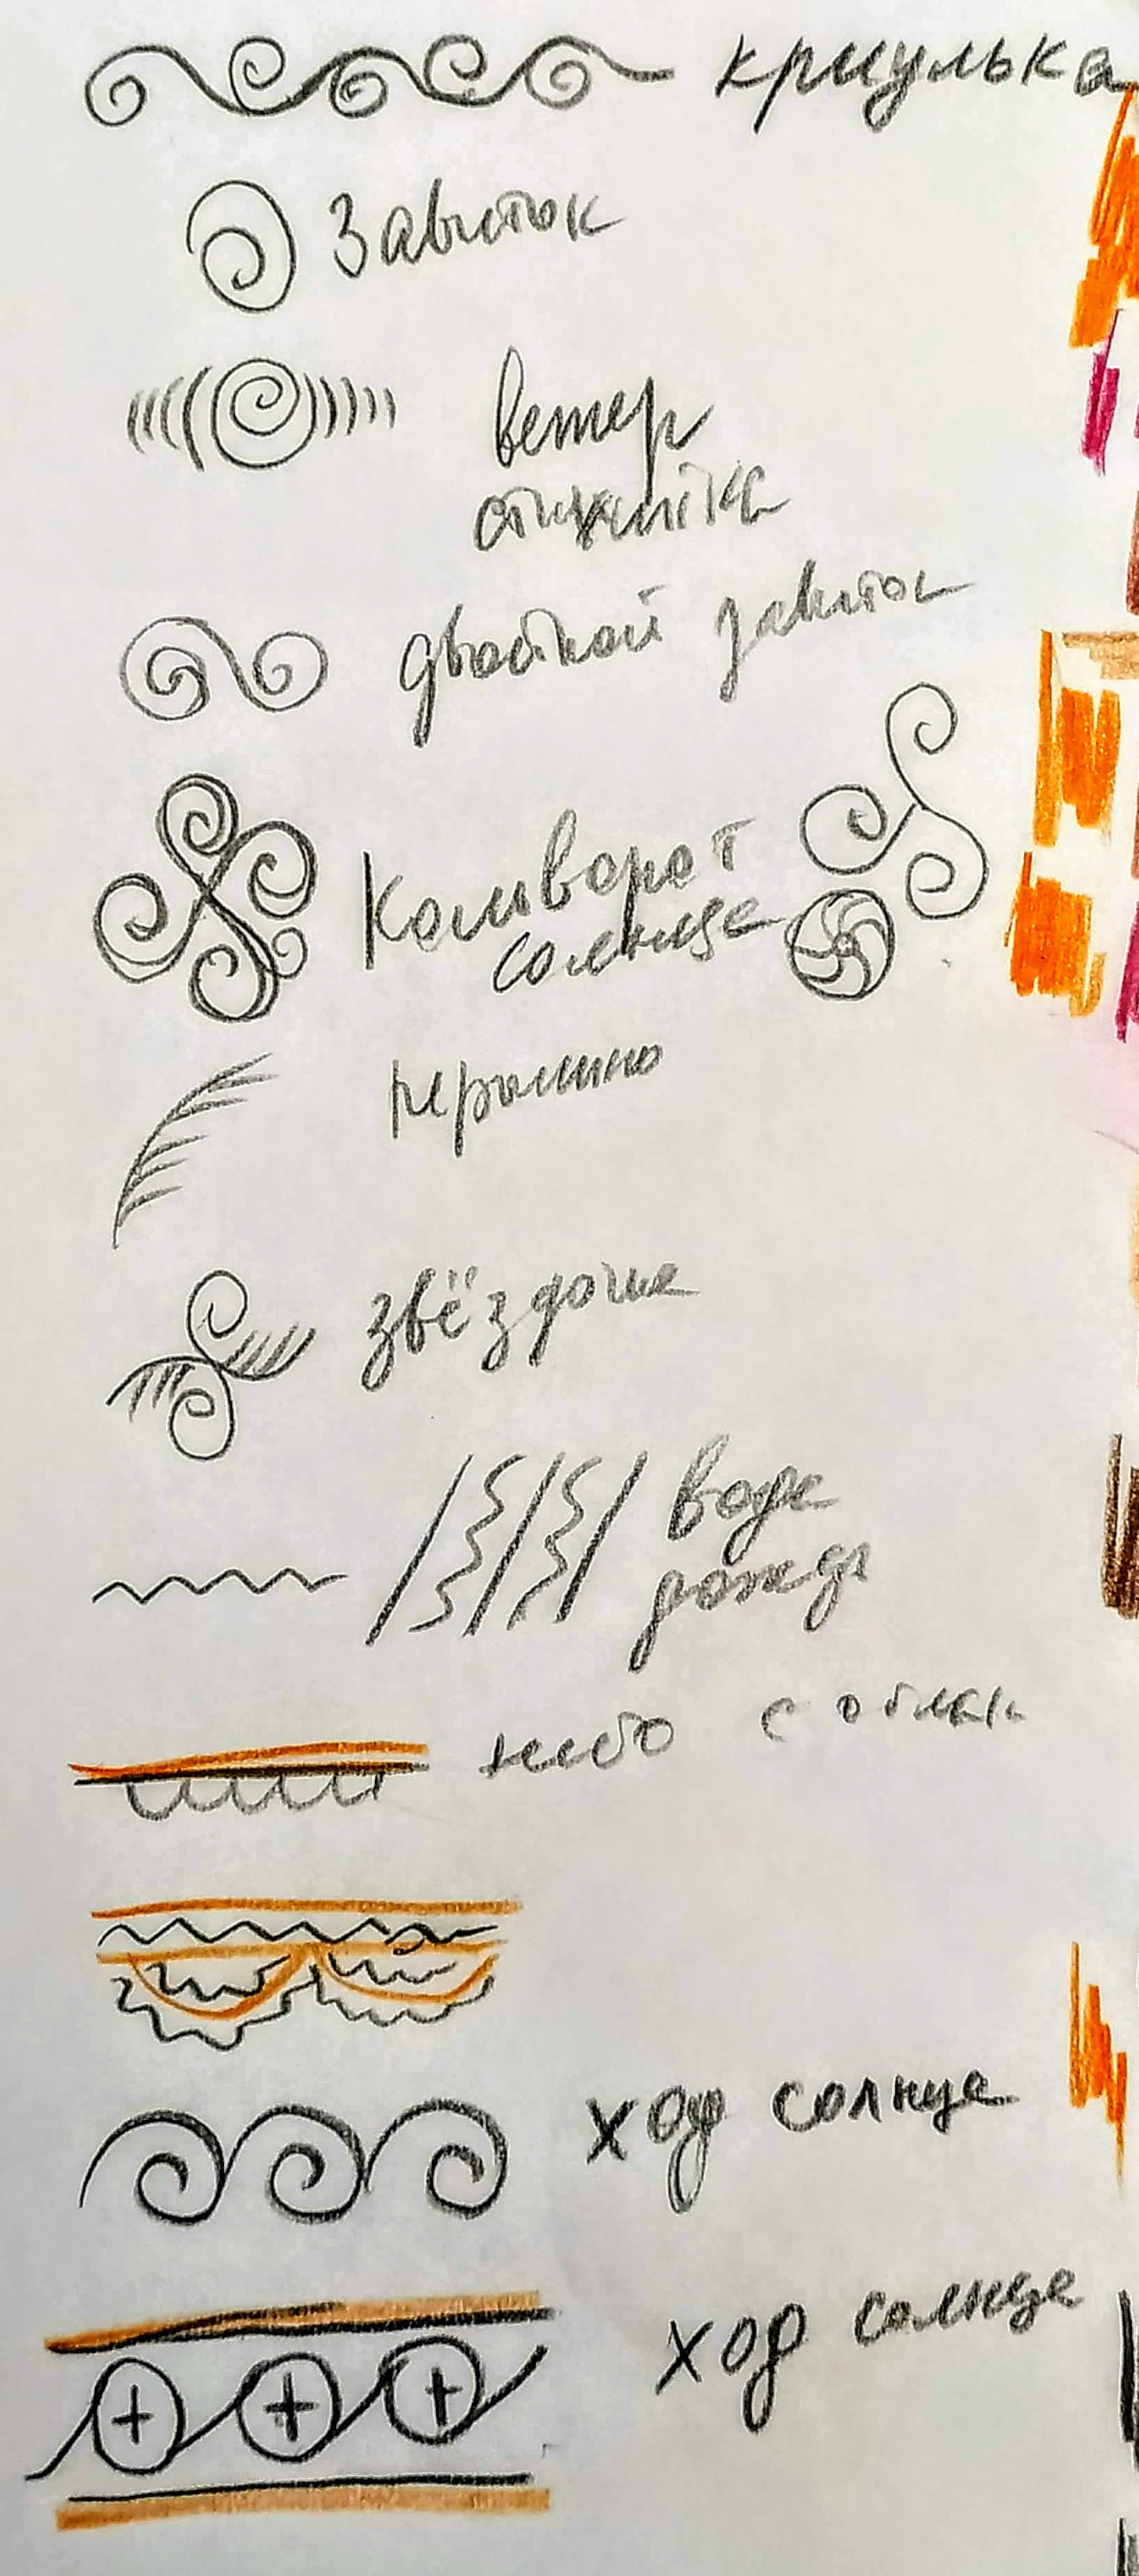 криулька
Завиток
ветер
двойной завиток
Коловорот
солнце
перышко
звёздочка
вода
дождь
небо с облак
ход солнца
ход солнца